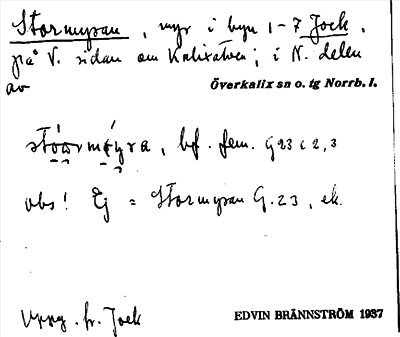 Stormyran, myr i byn 1-7 Jock,
på V. sidan om Kalixälven; i N. delen
av
Överkalix sn o. tg Norrb. l.
stóormyra, bf. fem. G 23 c 2, 3
obs! Ej = Stormyran G. 23, ek.
Uppg. fr. Jock
EDVIN BRÄNNSTRÖM 1937